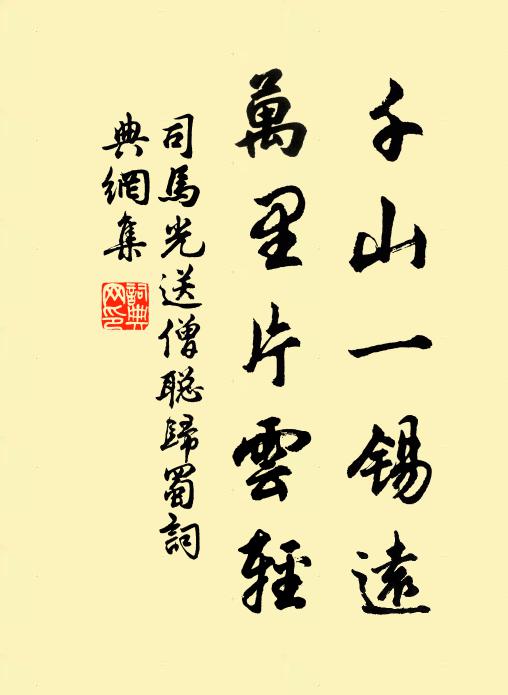 千山一錫遠
萬里片雲輕
司馬光送僧聡歸蜀詞
典網集
詞典
网印